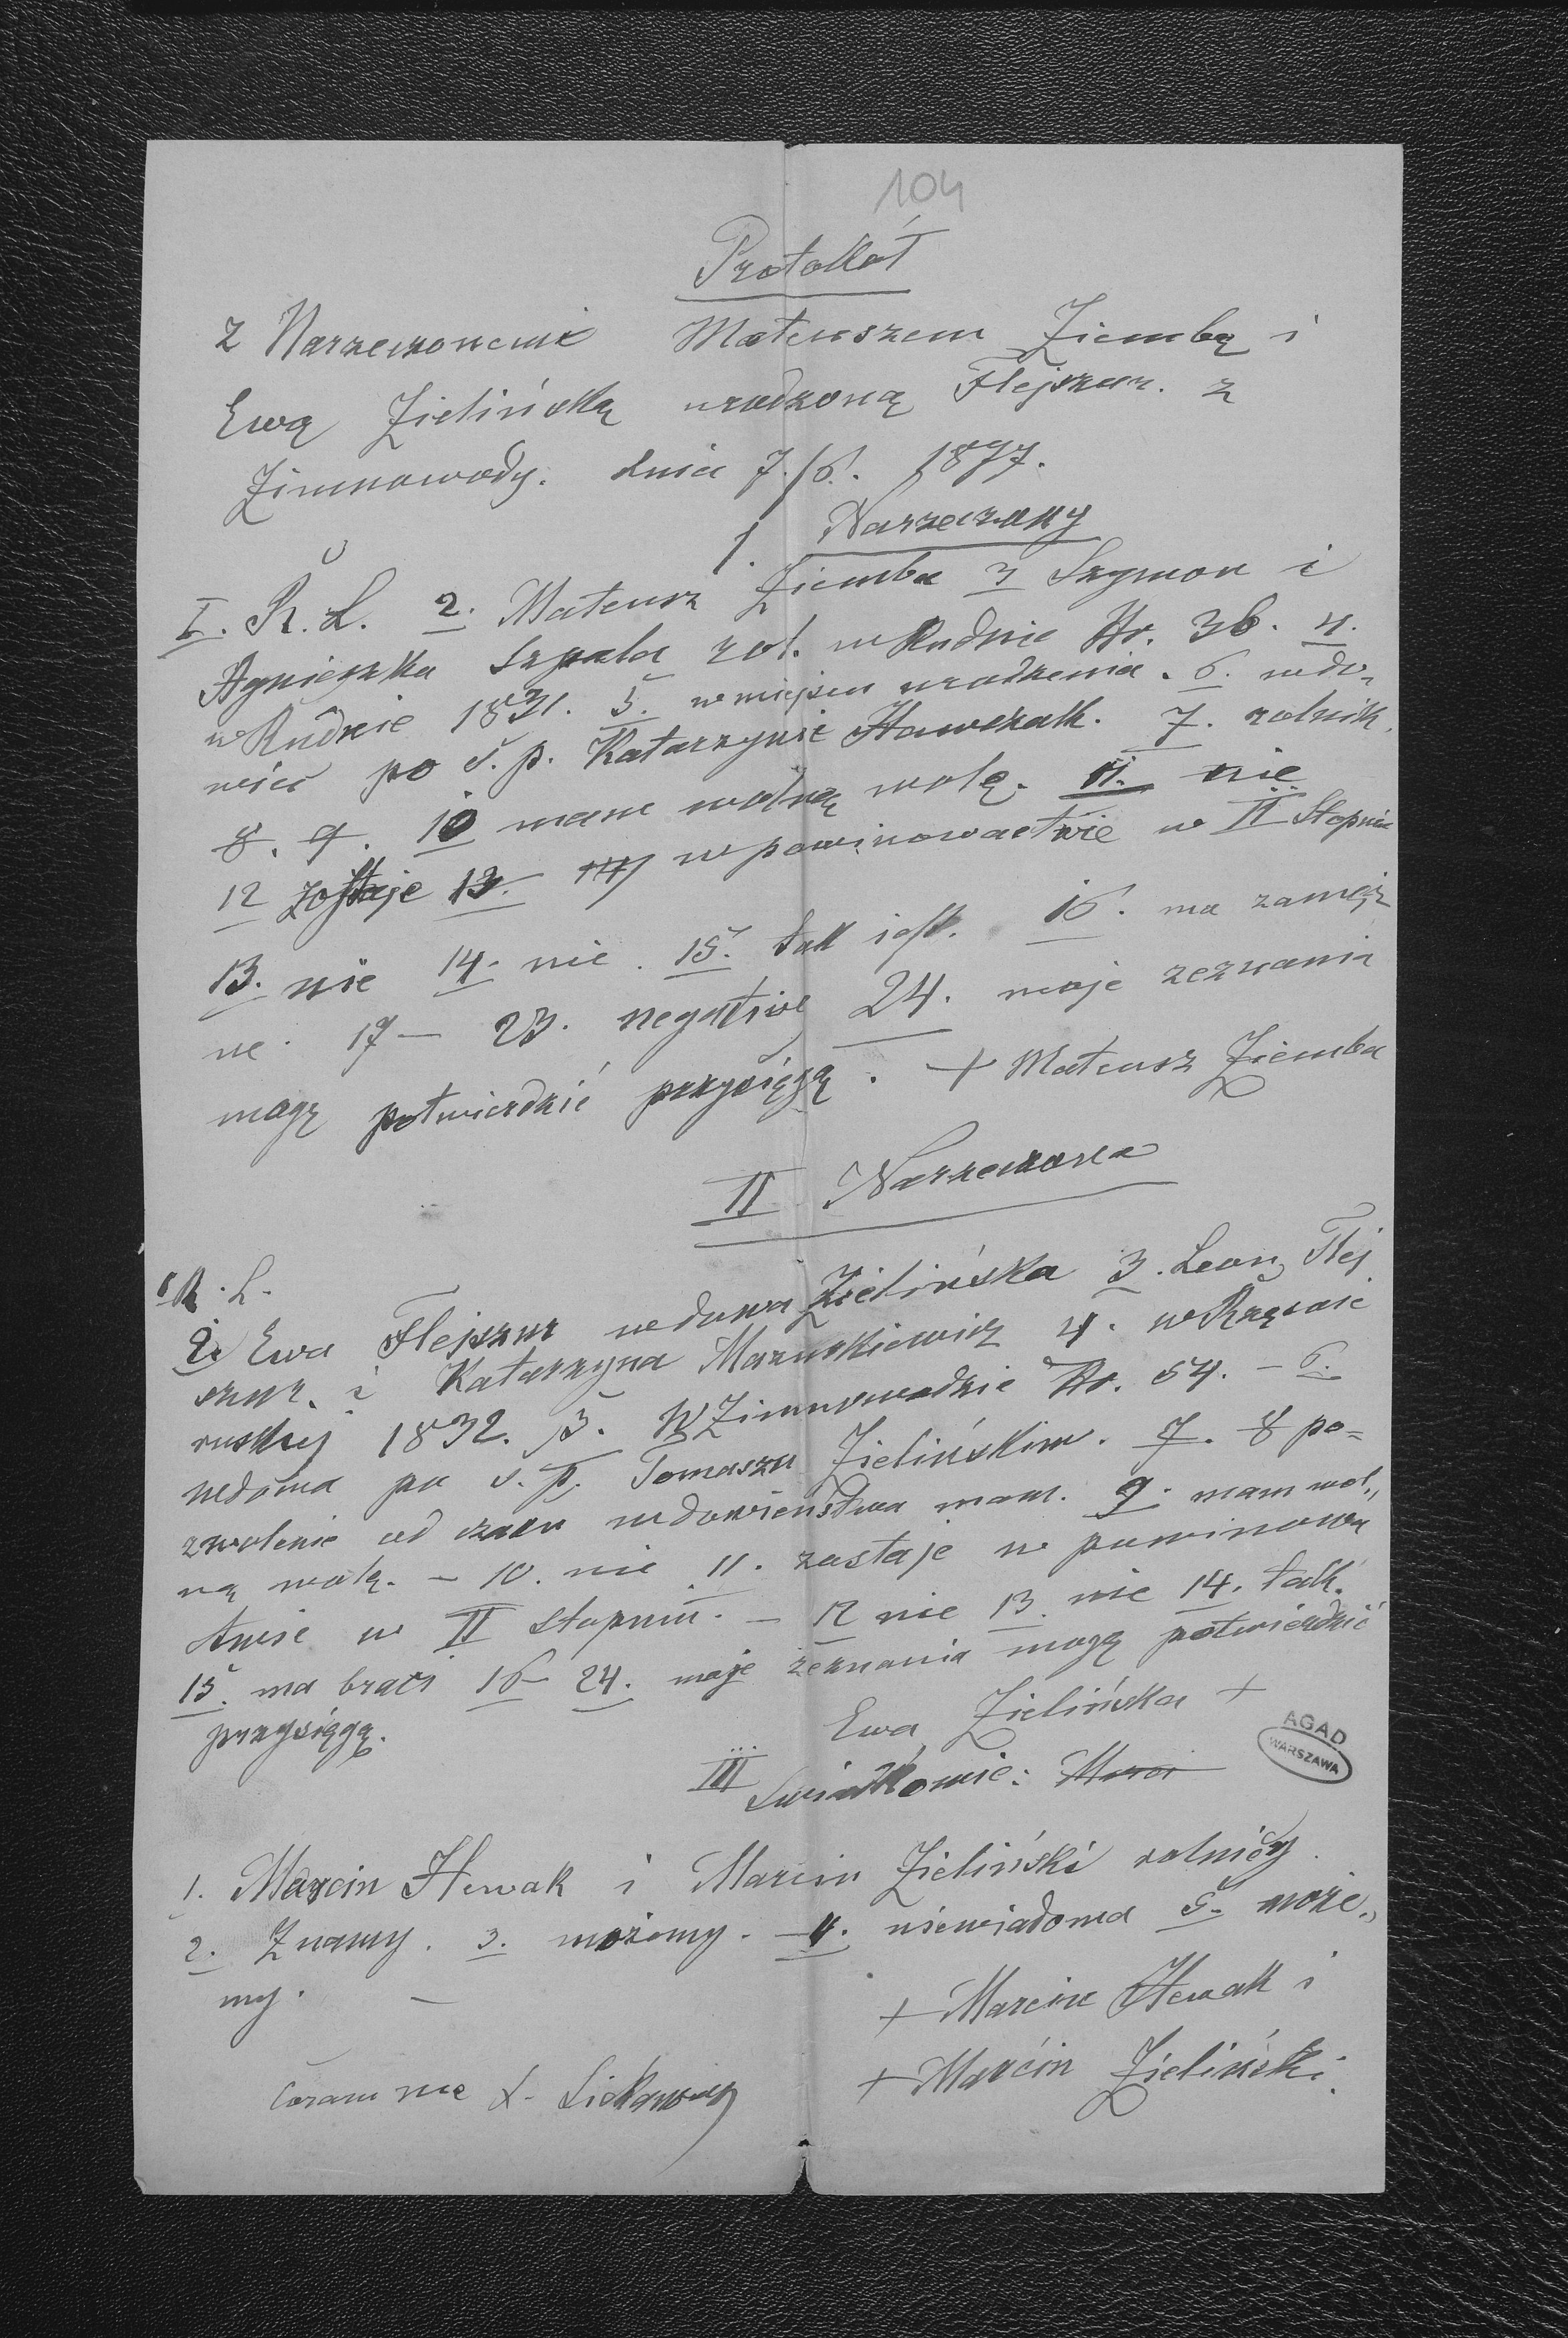 104
Protokół
z Narzeczonemi Mateuszem Ziembą i
Ewą Zielińską urodzoną Flejszur. z
Zimnowody. dnia 7./6. 1877.
I. Narzeczony
I. R. L. 2. Mateusz Ziemba 3 Szymon i
Agnieszka Szpala rol. w Rudnie Nr. 36. 4.
w Rudnie 1831. 5. w miejscu urodzenia. 6. wdo-
wiec po ś. p. Katarzynie Hawczak. 7. rolnik.
8. 9. 10 mam wolną wolę. 11. nie
12 zostaje 13. w powinowactwie w II Stopniu
13. nie 14. nie. 15. tak jest. 16. ma zamęż
ne. 17 — 23. negative 24. moje zeznania
mogę potwierdzić przysięgą. + Mateusz Ziemba
II Narzeczona
1 R. L.
2. Ewa Flejszur wdowa Zielińska 3. Leon Flej
szur. i Katarzyna Mazurkiewicz 4. w Rzęśnie
ruskiej 1832. 5. W Zimnowodzie Nr. 54. — 6.
wdowa po ś. p. Tomaszu Zielińskim. 7. 8 po=
zwolenie od czasu wdowieństwa mam. 9. mam wol„
ną wolę. — 10. nie 11. zostaje w powinowa
ctwie w II stopniu. — 12 nie 13. nie 14. tak.
15. ma braci 16 — 24. moje zeznania mogę potwierdzić
przysięgą.
Ewa Zielińska +
AGAD
WARSZAWA
III Świadkowie:
1. Marcin Hewak i Marcin Zieliński rolnicy.
2. Znamy. 3. możemy. — 4. niewiadomo 5. może„
my. —
+ Marcin Hewak i
+ Marcin Zieliński.
Coram me